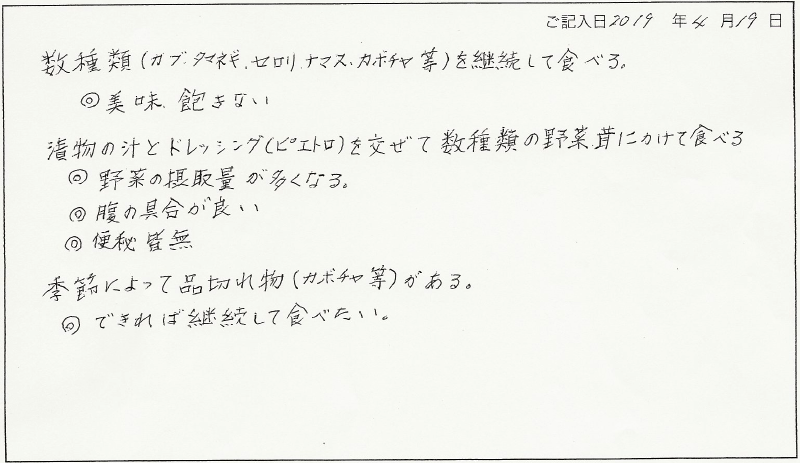 ご記入日 2019 年 4 月 19 日
数種類(カブ、タマネギ、セロリ、ナマス、カボチャ等)を継続して食べる。
◎美味、飽きない
漬物の汁とドレッシング(ピエトロ)を交ぜて数種類の野菜茸にかけて食べる
◎野菜の摂取量が多くなる。
◎腹の具合が良い
◎便秘皆無
季節によって品切れ物(カボチャ等)がある。
◎できれば継続して食べたい。